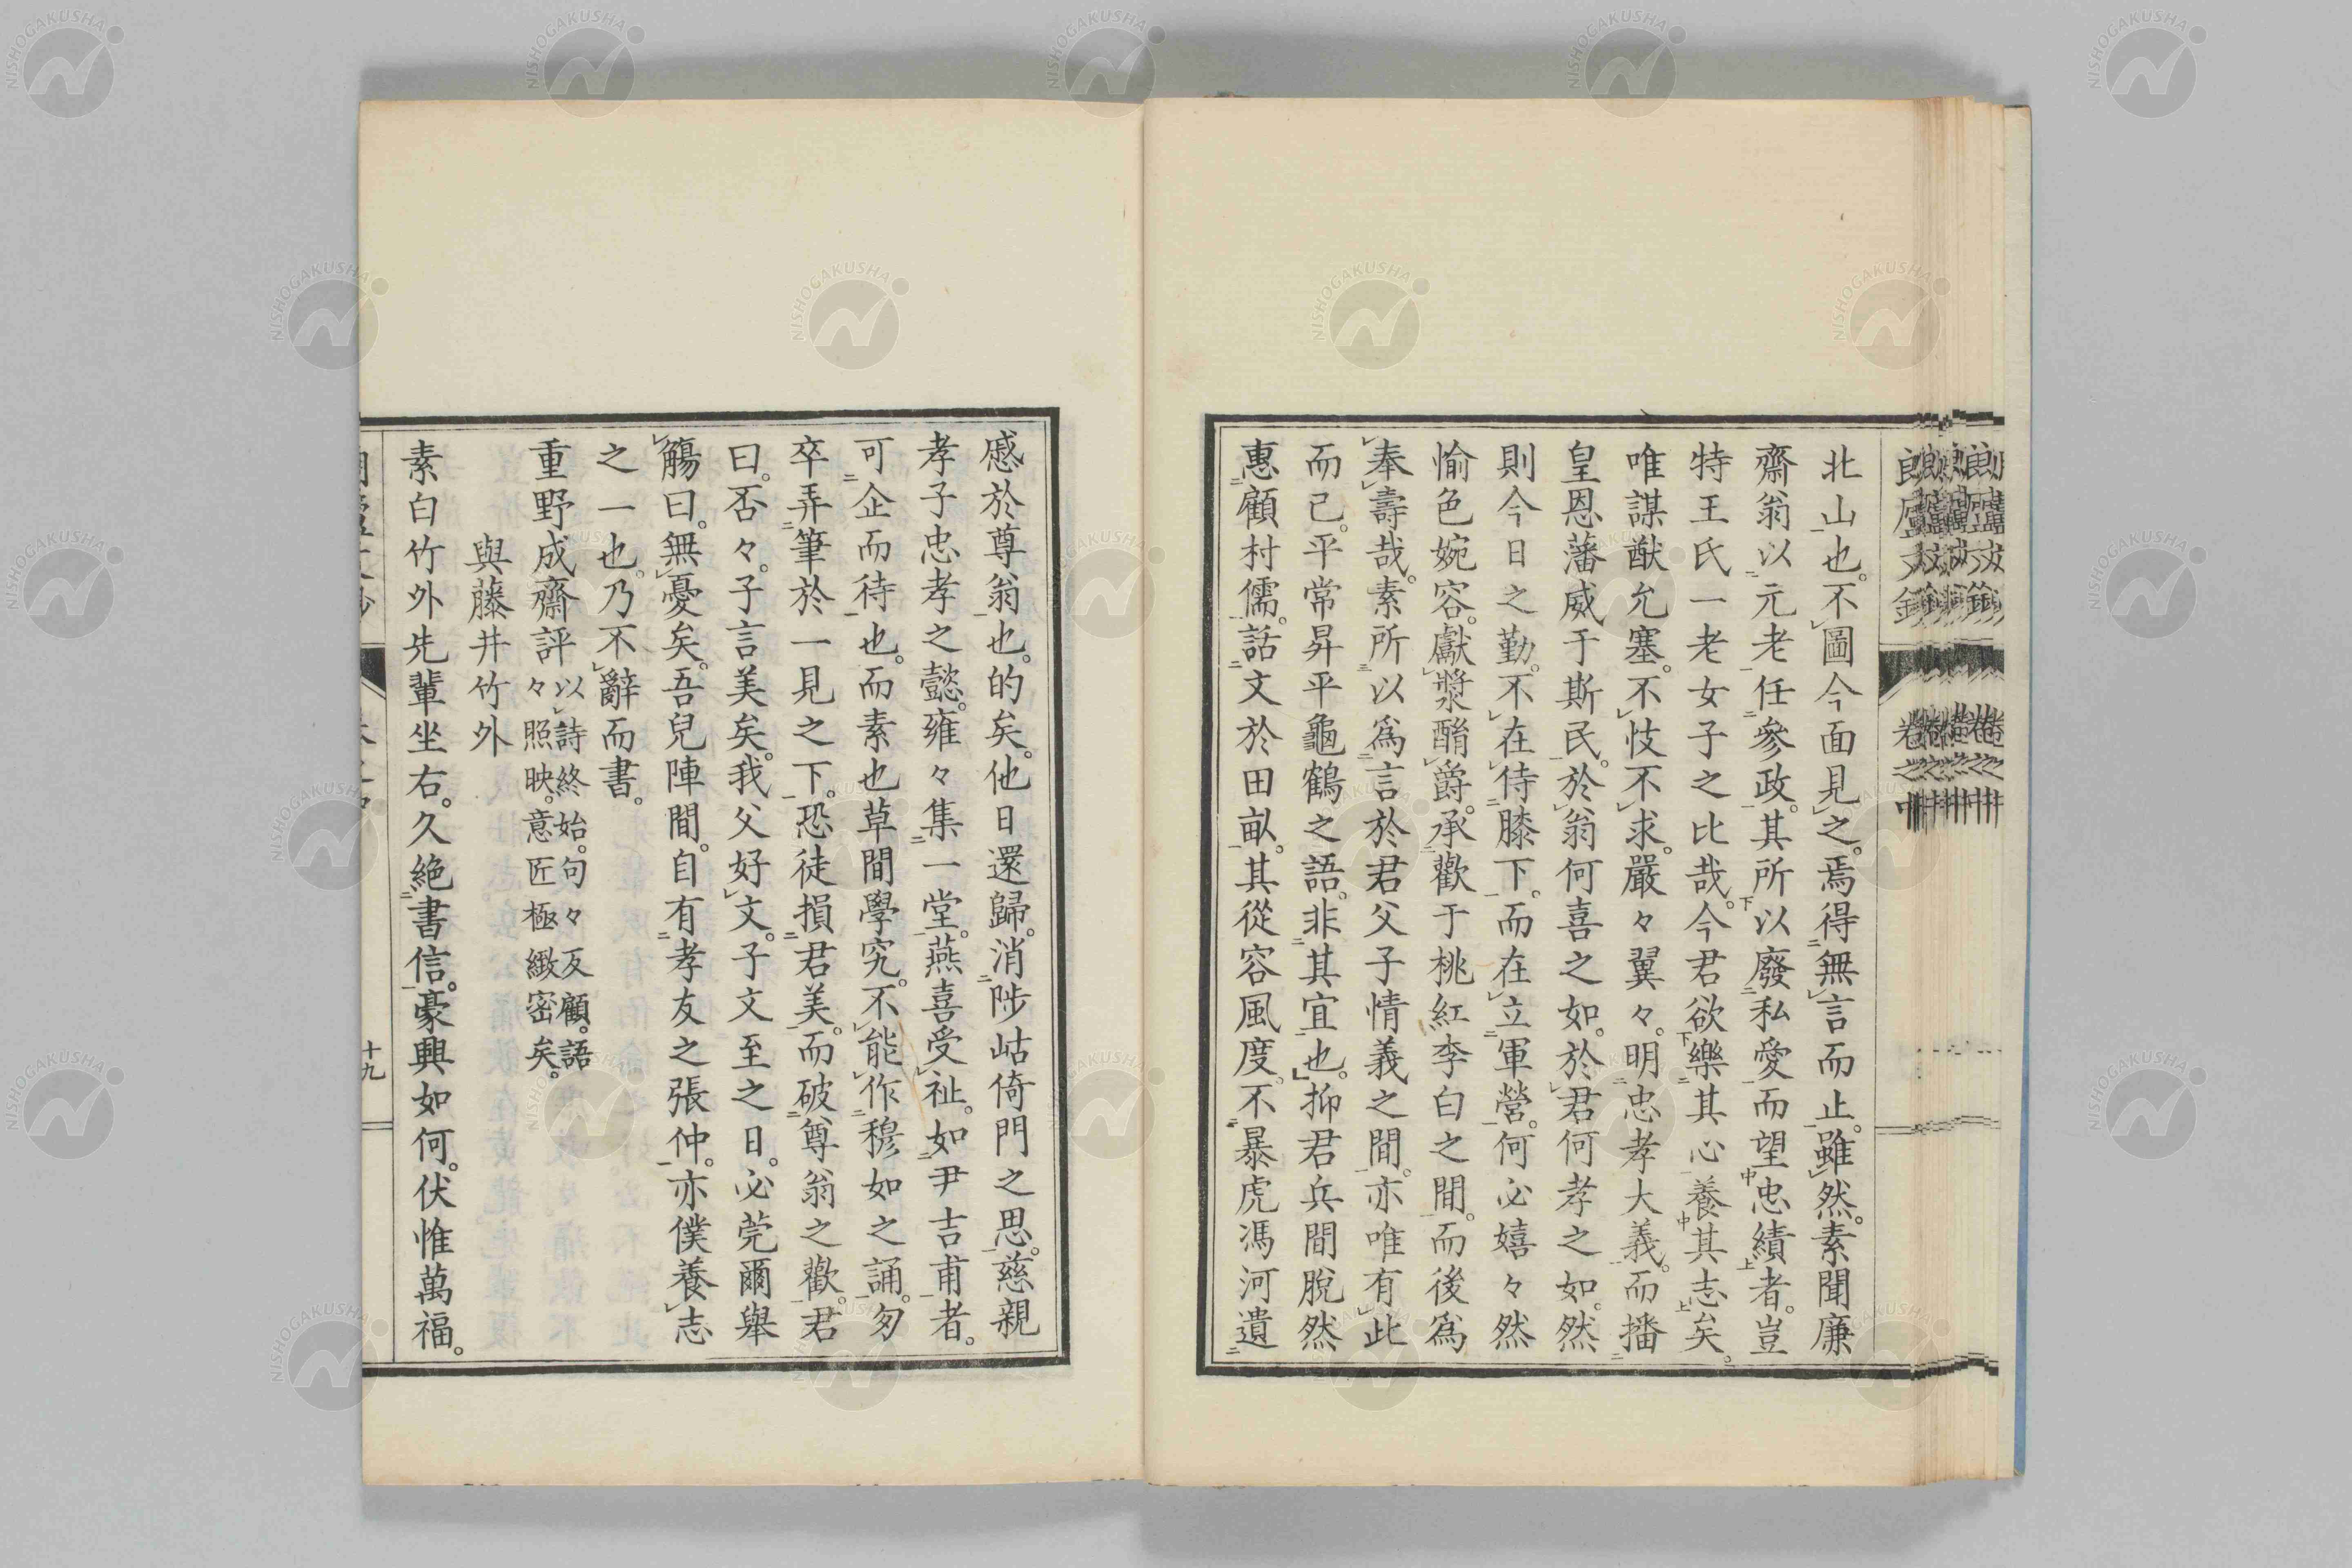 北山也。不圖今面見之。焉得無言而止。雖然。素聞廉
齋翁以元老任參政。其所以廢私愛而望忠績者。豈
特王氏一老女子之比哉。今君欲樂其心養其志矣。
唯謀猷允塞。不忮不求。嚴々翼々。明忠孝大義。而播
皇恩藩威于斯民。於翁何喜之如。於君何孝之如。然
則今日之勤。不在侍膝下。而在立軍營。何必嬉々然
愉色婉容。獻漿酳爵。承歡于桃紅李白之間。而後為
奉壽哉。素所以為言於君父子情義之間。亦唯有此
而已。平常昇平龜鶴之語。非其宜也。抑君兵間脫然
惠顧村儒。話文於田畝。其從容風度。不暴虎馮河遺
慼於尊翁也。的矣。他日還歸。消陟岵倚門之思。慈親
孝子忠孝之懿。雍々集一堂。燕喜受祉。如尹吉甫者。
可企而待也。而素也草間學究。不能作穆如之誦。匆
卒弄筆於一見之下。恐徒損君美。而破尊翁之歡。君
曰。否々。子言美矣。我父好文。子文至之日。必莞爾舉
觴曰。無憂矣。吾兒陣間。自有孝友之張仲。亦僕養志
之一也。乃不辭而書。
重野成齋評 以詩終始。句々反顧。語
々照映。意匠極緻密矣。
與藤井竹外
素白竹外先輩坐右。久絶書信。豪興如何。伏惟萬福。
十九
NISHOGAKUSHA